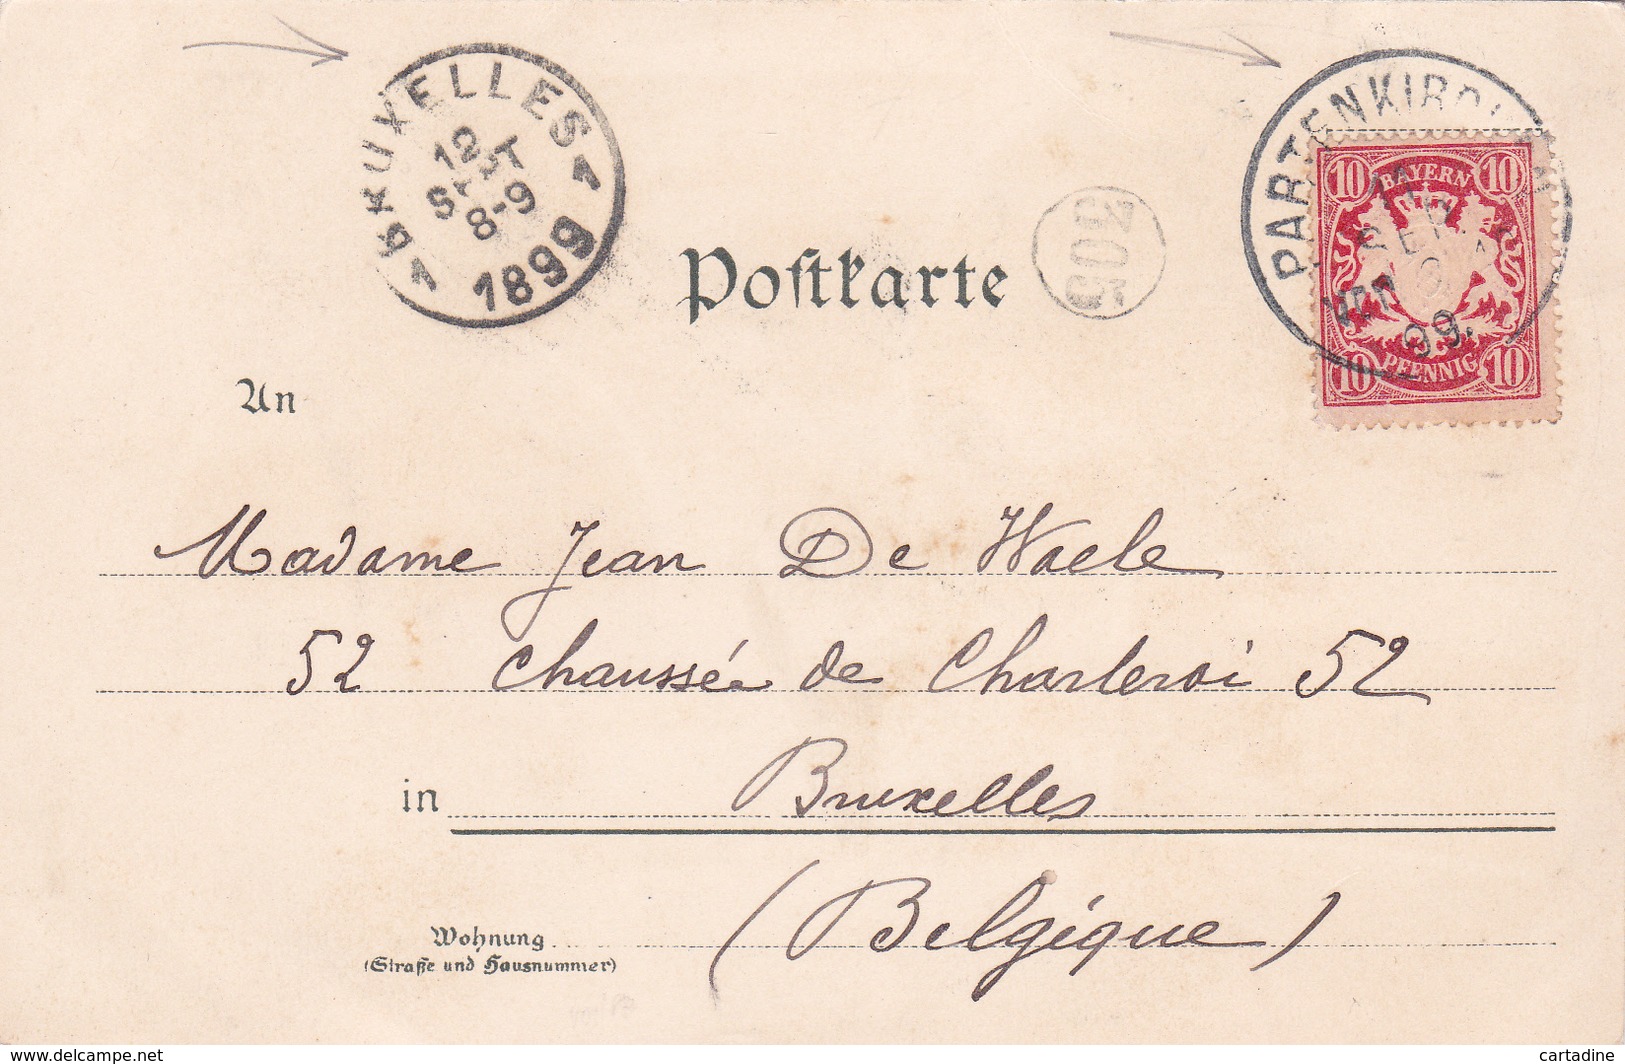 BRUXELLES
12
SEPT
8-9
1899
1 1
PARTENKIRCHEN
11
SEP.
99.
BAYERN
10 10
10 PFENNIG 10
Postkarte
An
Madame Jean De Waele
52 Chaussée de Charleroi 52
in Bruxelles
(Belgique)
Wohnung
(Straße und Hausnummer)
www.delcampe.net
cartadine